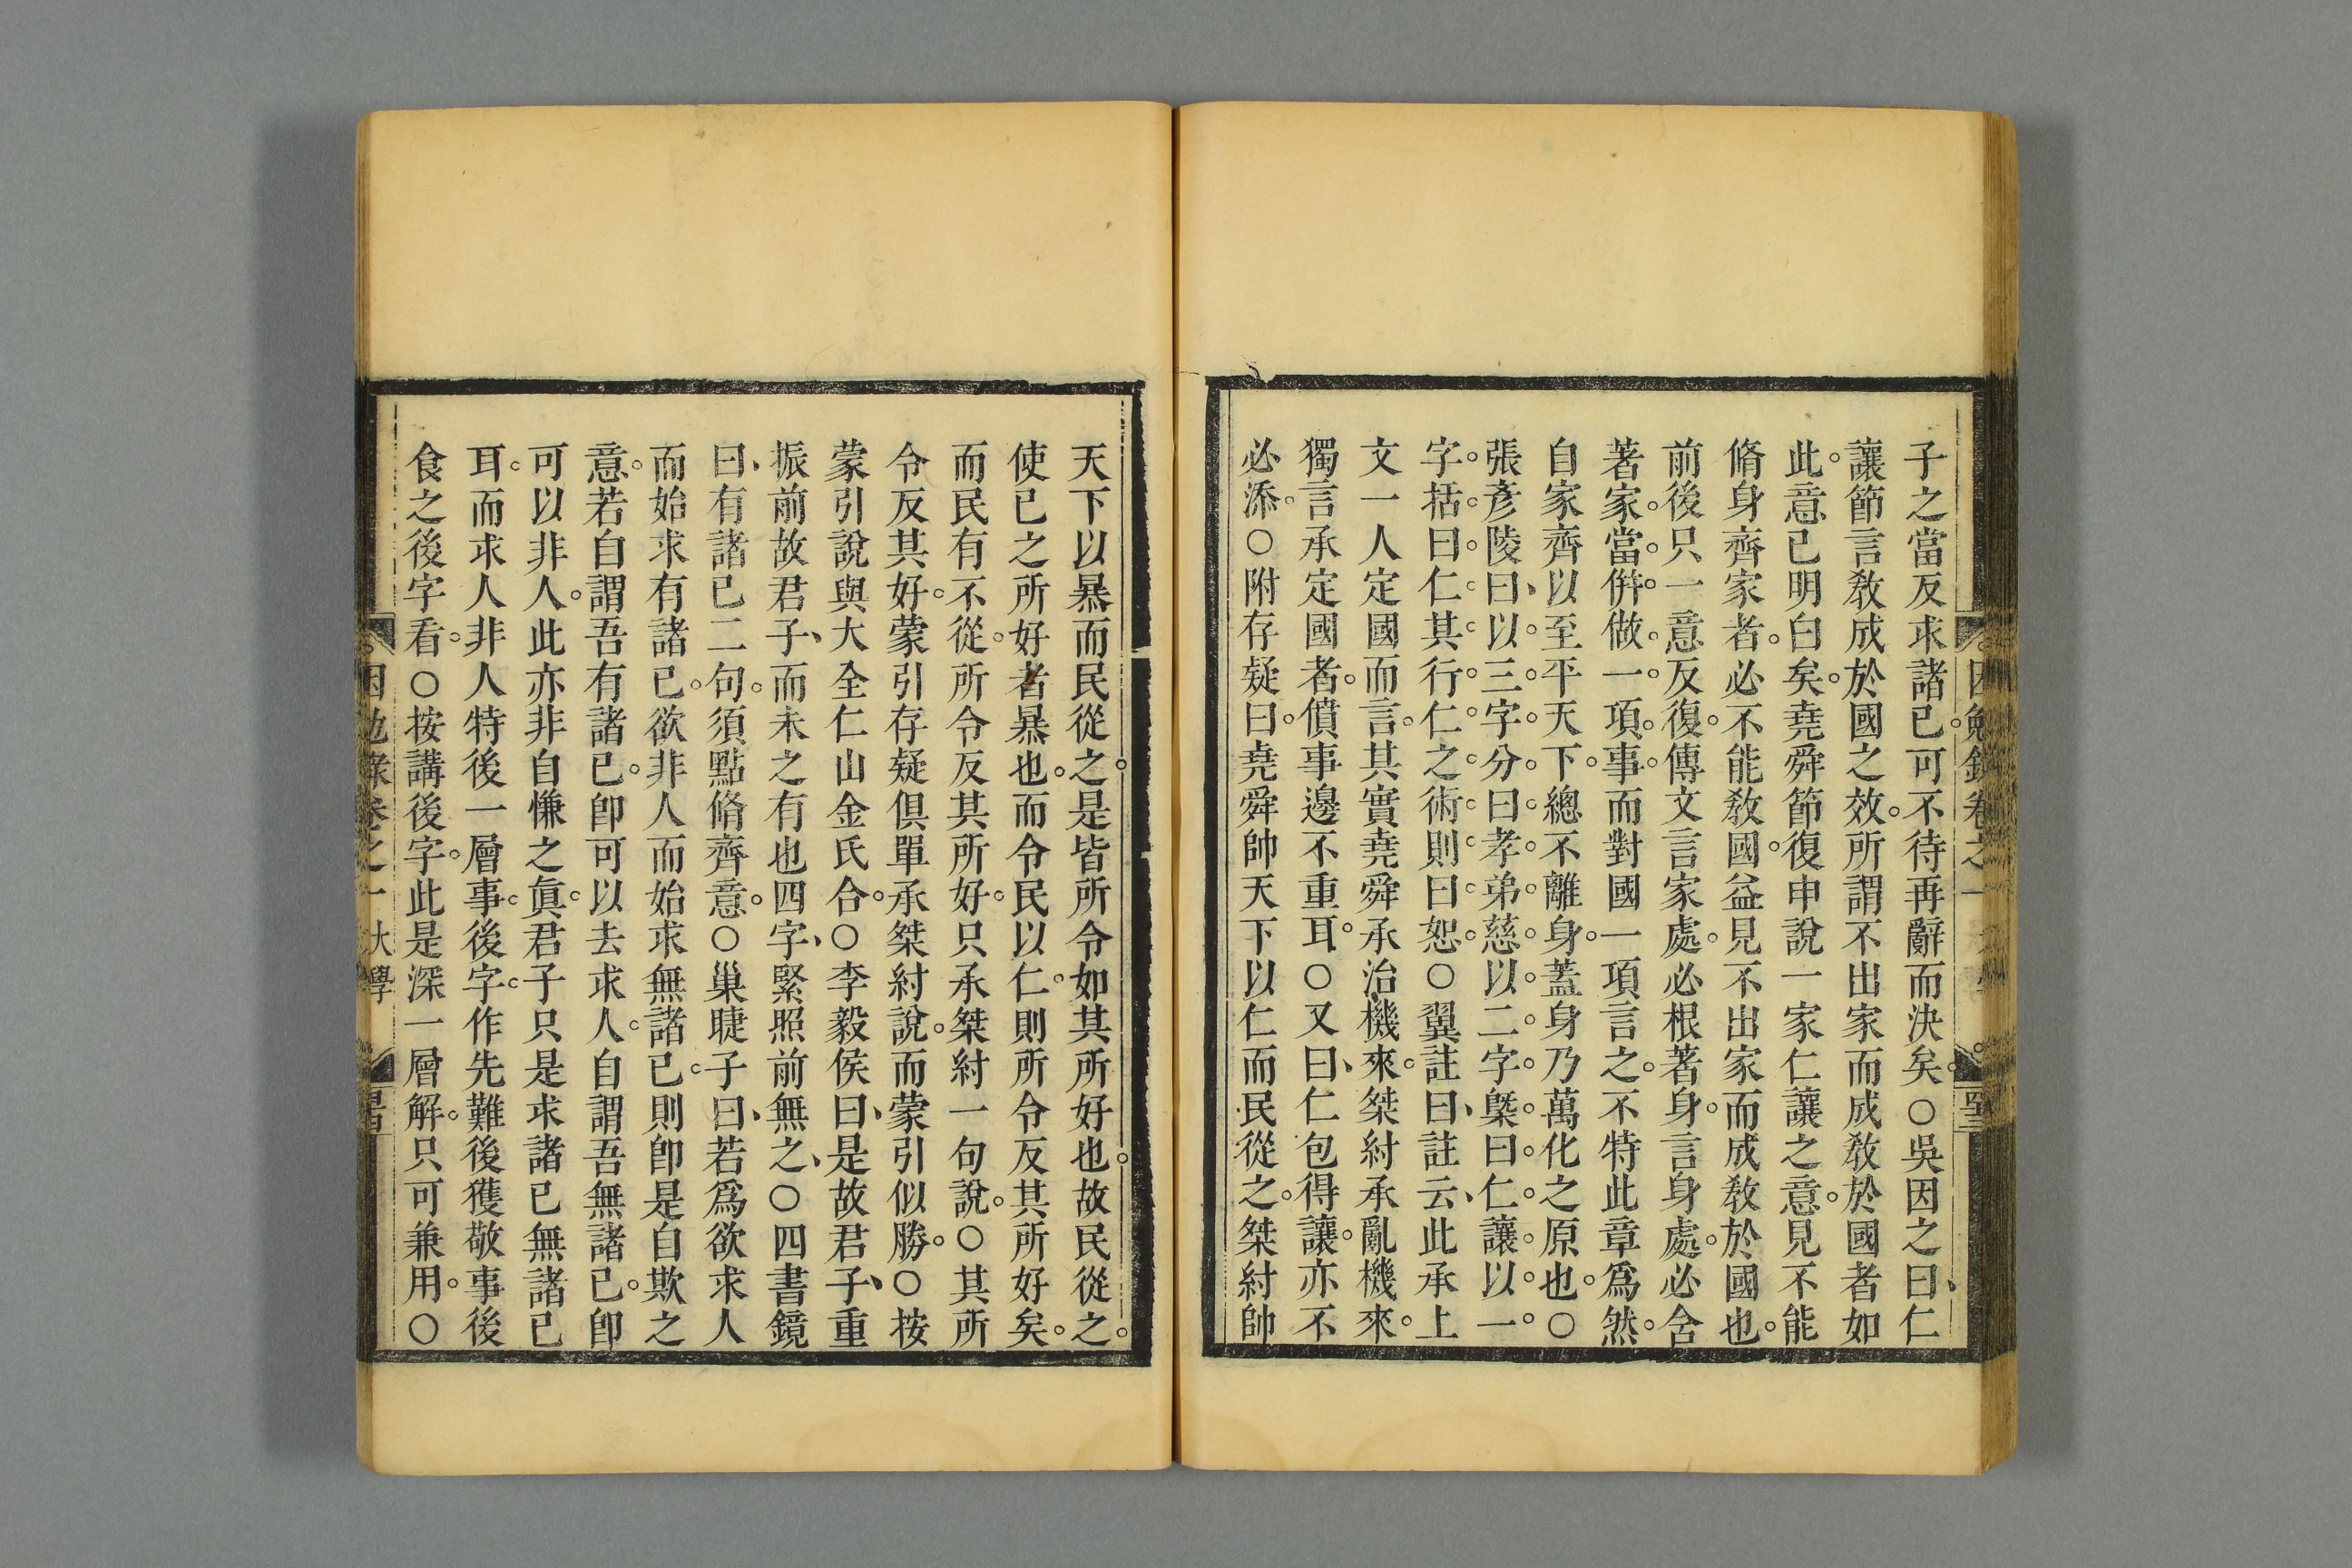 子之當反求諸已可不待再辭而決矣○吳因之曰仁
讓節言敎成於國之效所謂不出家而成敎於國者如
此意已明白矣堯舜節復申說一家仁讓之意見不能
脩身齊家者必不能敎國益見不出家而成敎於國也
前後只一意反復傳文言家處必根著身言身處必舍
著家當倂做一項事而對國一項言之不特此章爲然
自家齊以至平天下總不離身蓋身乃萬化之原也○
張彥陵曰以三字分曰孝弟慈以二字槩曰仁讓以一
字括曰仁其行仁之術則曰恕○翼註曰註云此承上
文一人定國而言其實堯舜承治機來桀紂承亂機來
獨言承定國者僨事邊不重耳○又曰仁包得讓亦不
必添○附存疑曰堯舜帥天下以仁而民從之桀紂帥
天下以暴而民從之是皆所令如其所好也故民從之
使已之所好者暴也而令民以仁則所令反其所好矣
而民有不從所令反其所好只承桀紂一句說○其所
令反其好蒙引存疑俱單承桀紂說而蒙引似勝○按
蒙引說與大全仁山金氏合○李毅侯曰是故君子重
振前故君子而未之有也四字緊照前無之○四書鏡
曰有諸已二句須點脩齊意○巢睫子曰若爲欲求人
而始求有諸已欲非人而始求無諸已則卽是自欺之
意若自謂吾有諸已卽可以去求人自謂吾無諸已卽
可以非人此亦非自慊之眞君子只是求諸已無諸已
耳而求人非人特後一層事後字作先難後獲敬事後
食之後字看○按講後字此是深一層解只可兼用○
因勉錄卷之一 大學